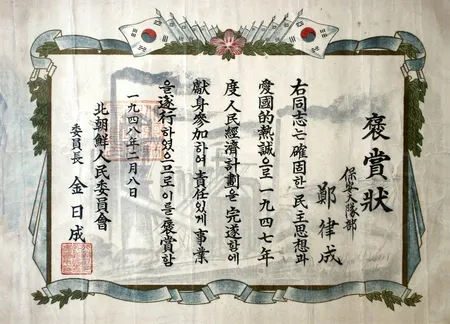 褒賞狀
保安大隊部
鄭律成
右同志는 確固한 民主思想과
愛國的熱誠으로 一九四七年
度人民經濟計劃을 完遂함에
献身參加하여 責任있게 事業
을 遂行하였으므로 이를 褒賞함
一九四八年二月八日
北朝鮮人民委員會
委員長 金日成